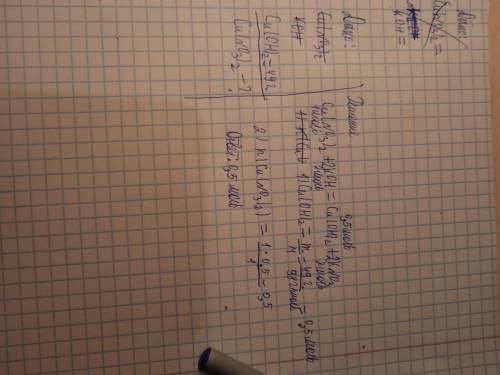 Дано:
Cu(NO3)2 =
KOH =
Дано:
Cu(NO3)2
KOH
Cu(OH)2 = 49г
Cu(NO3)2 - ?
Решение
0,5 моль
Cu(NO3)2 + 2KOH = Cu(OH)2 + 2KNO3
1 моль 2 моль 2 моль
1) Cu(OH)2 = m/M = 49г/98г/моль = 0,5 моль
2) n(Cu(NO3)2) = 1·0,5/1 = 0,5
Ответ: 0,5 моль